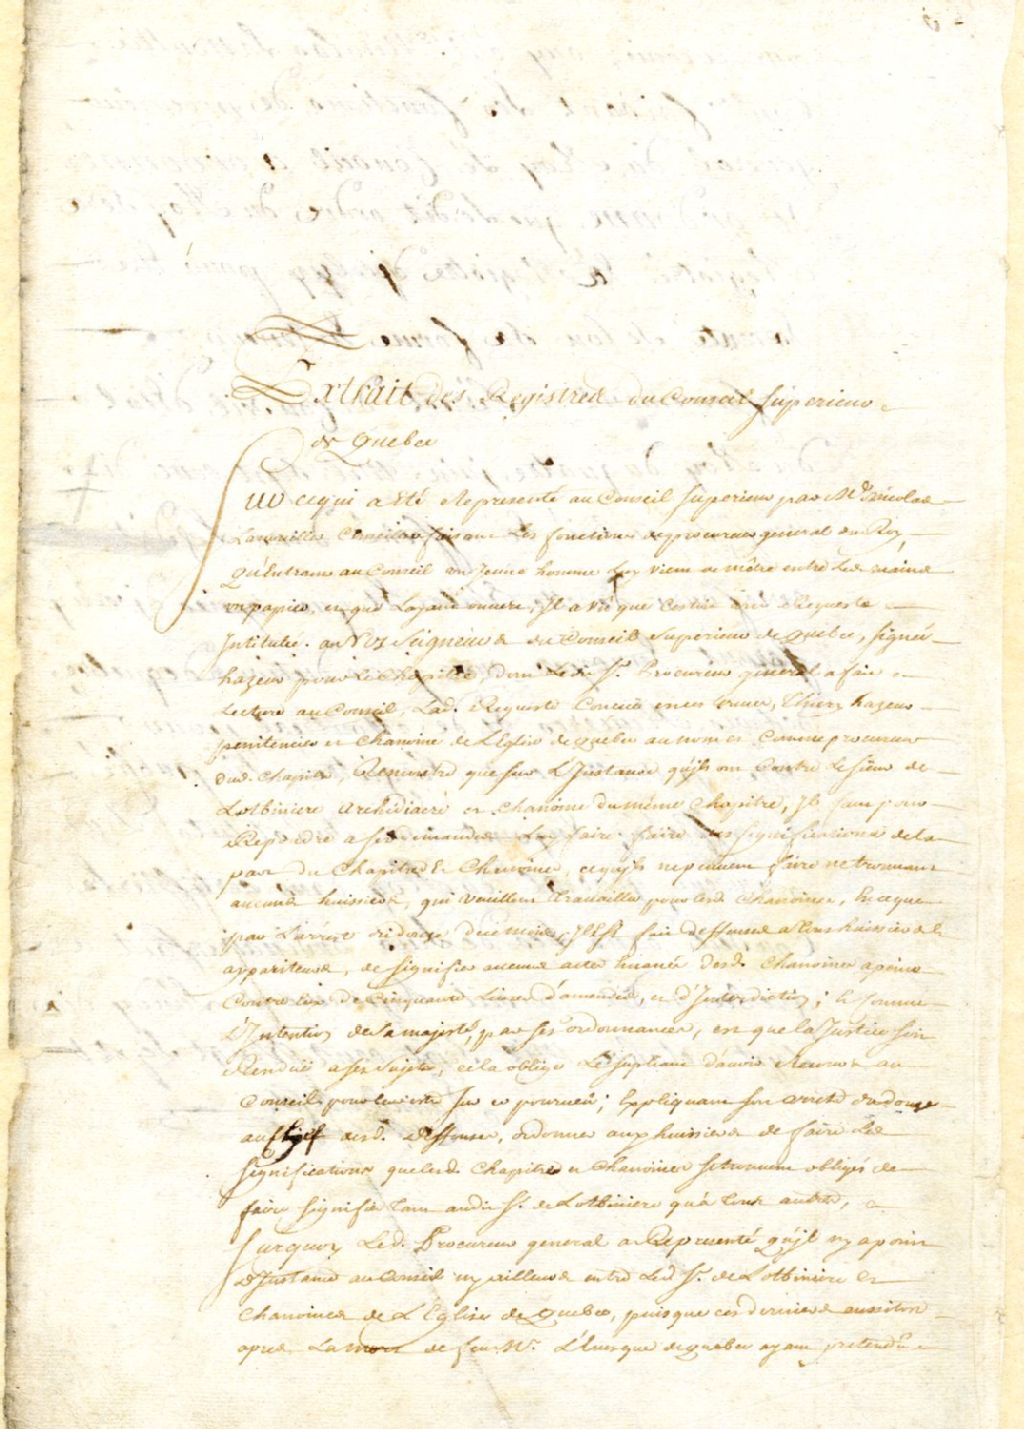 Extrait des Registres du Conseil Superieur
de Quebec
Sur ce qui a êté Representé au Conseil Superieur par Me Nicolas
Lanouiller Conseiller faisant les fonctions de procureur general du Roy,
Qu'Entrant au Conseil un Jeune homme Luy vient de mêtre entre Les mains
un papier, et que Layant ouvert, Jl a vû que c'estoit une Requeste
Jntitulée. a Nos Seigneurs du Conseil Superieur de Quebec, Signée
hazeur pour le Chapitre, dont Ledit Sr. Procureur general a fait
Lecture au Conseil, Lad. Requeste Concüe en ces termes, Thierry hazeur
penitencier et Chanoine de L'Eglise de Quebec au nom et Comme procureur
dud. Chapitre, Remontre que sur L'Jnstance qu'jls ont Contre Le sieur de
Lotbiniere Archidiacre et Chanoine du même Chapitre, Jls sont pour
Repondre a ses demandes Luy faire faire des significations de la
part du Chapitre & Chanoines, ce qu'jls ne peuvent faire ne trouvant
aucuns huissiers, qui veuillent travailler pour lesd. Chanoines, Et ce que
par L'arrest du douze du mois, Jl Est fait deffenses a tous huissiers &
appariteurs, de signifier aucuns actes Emanés desd. Chanoines a peine
Contre eux de Cinquante Livres d'amendes, et d'Jnterdiction; Et Comme
L'Jntention de Sa majesté, par ses ordonnances, est que la Justice soit
Rendüe a ses Sujets, cela oblige Le supliant d'avoir Recours au
Conseil pour leur estre sur ce pourvû; Expliquant son arrest du douze
au sujet desd. Deffenses, ordonner aux huissiers de faire Les
significations que lesd. Chapitre et Chanoines se trouvent obligés de
faire signifier tant audit Sr. de Lotbiniere qu'a tous autres,
Surquoy Led. Procureur general a Representé Qu'jl n'y a point
D'Jnstance au Conseil ny ailleurs entre Led. Sr. de Lotbiniere Et
Chanoines de L'Eglise de Quebec, puisque ces derniers aussitost
apres La mort de feu Mr. L'Evesque de quebec ayant pretendu